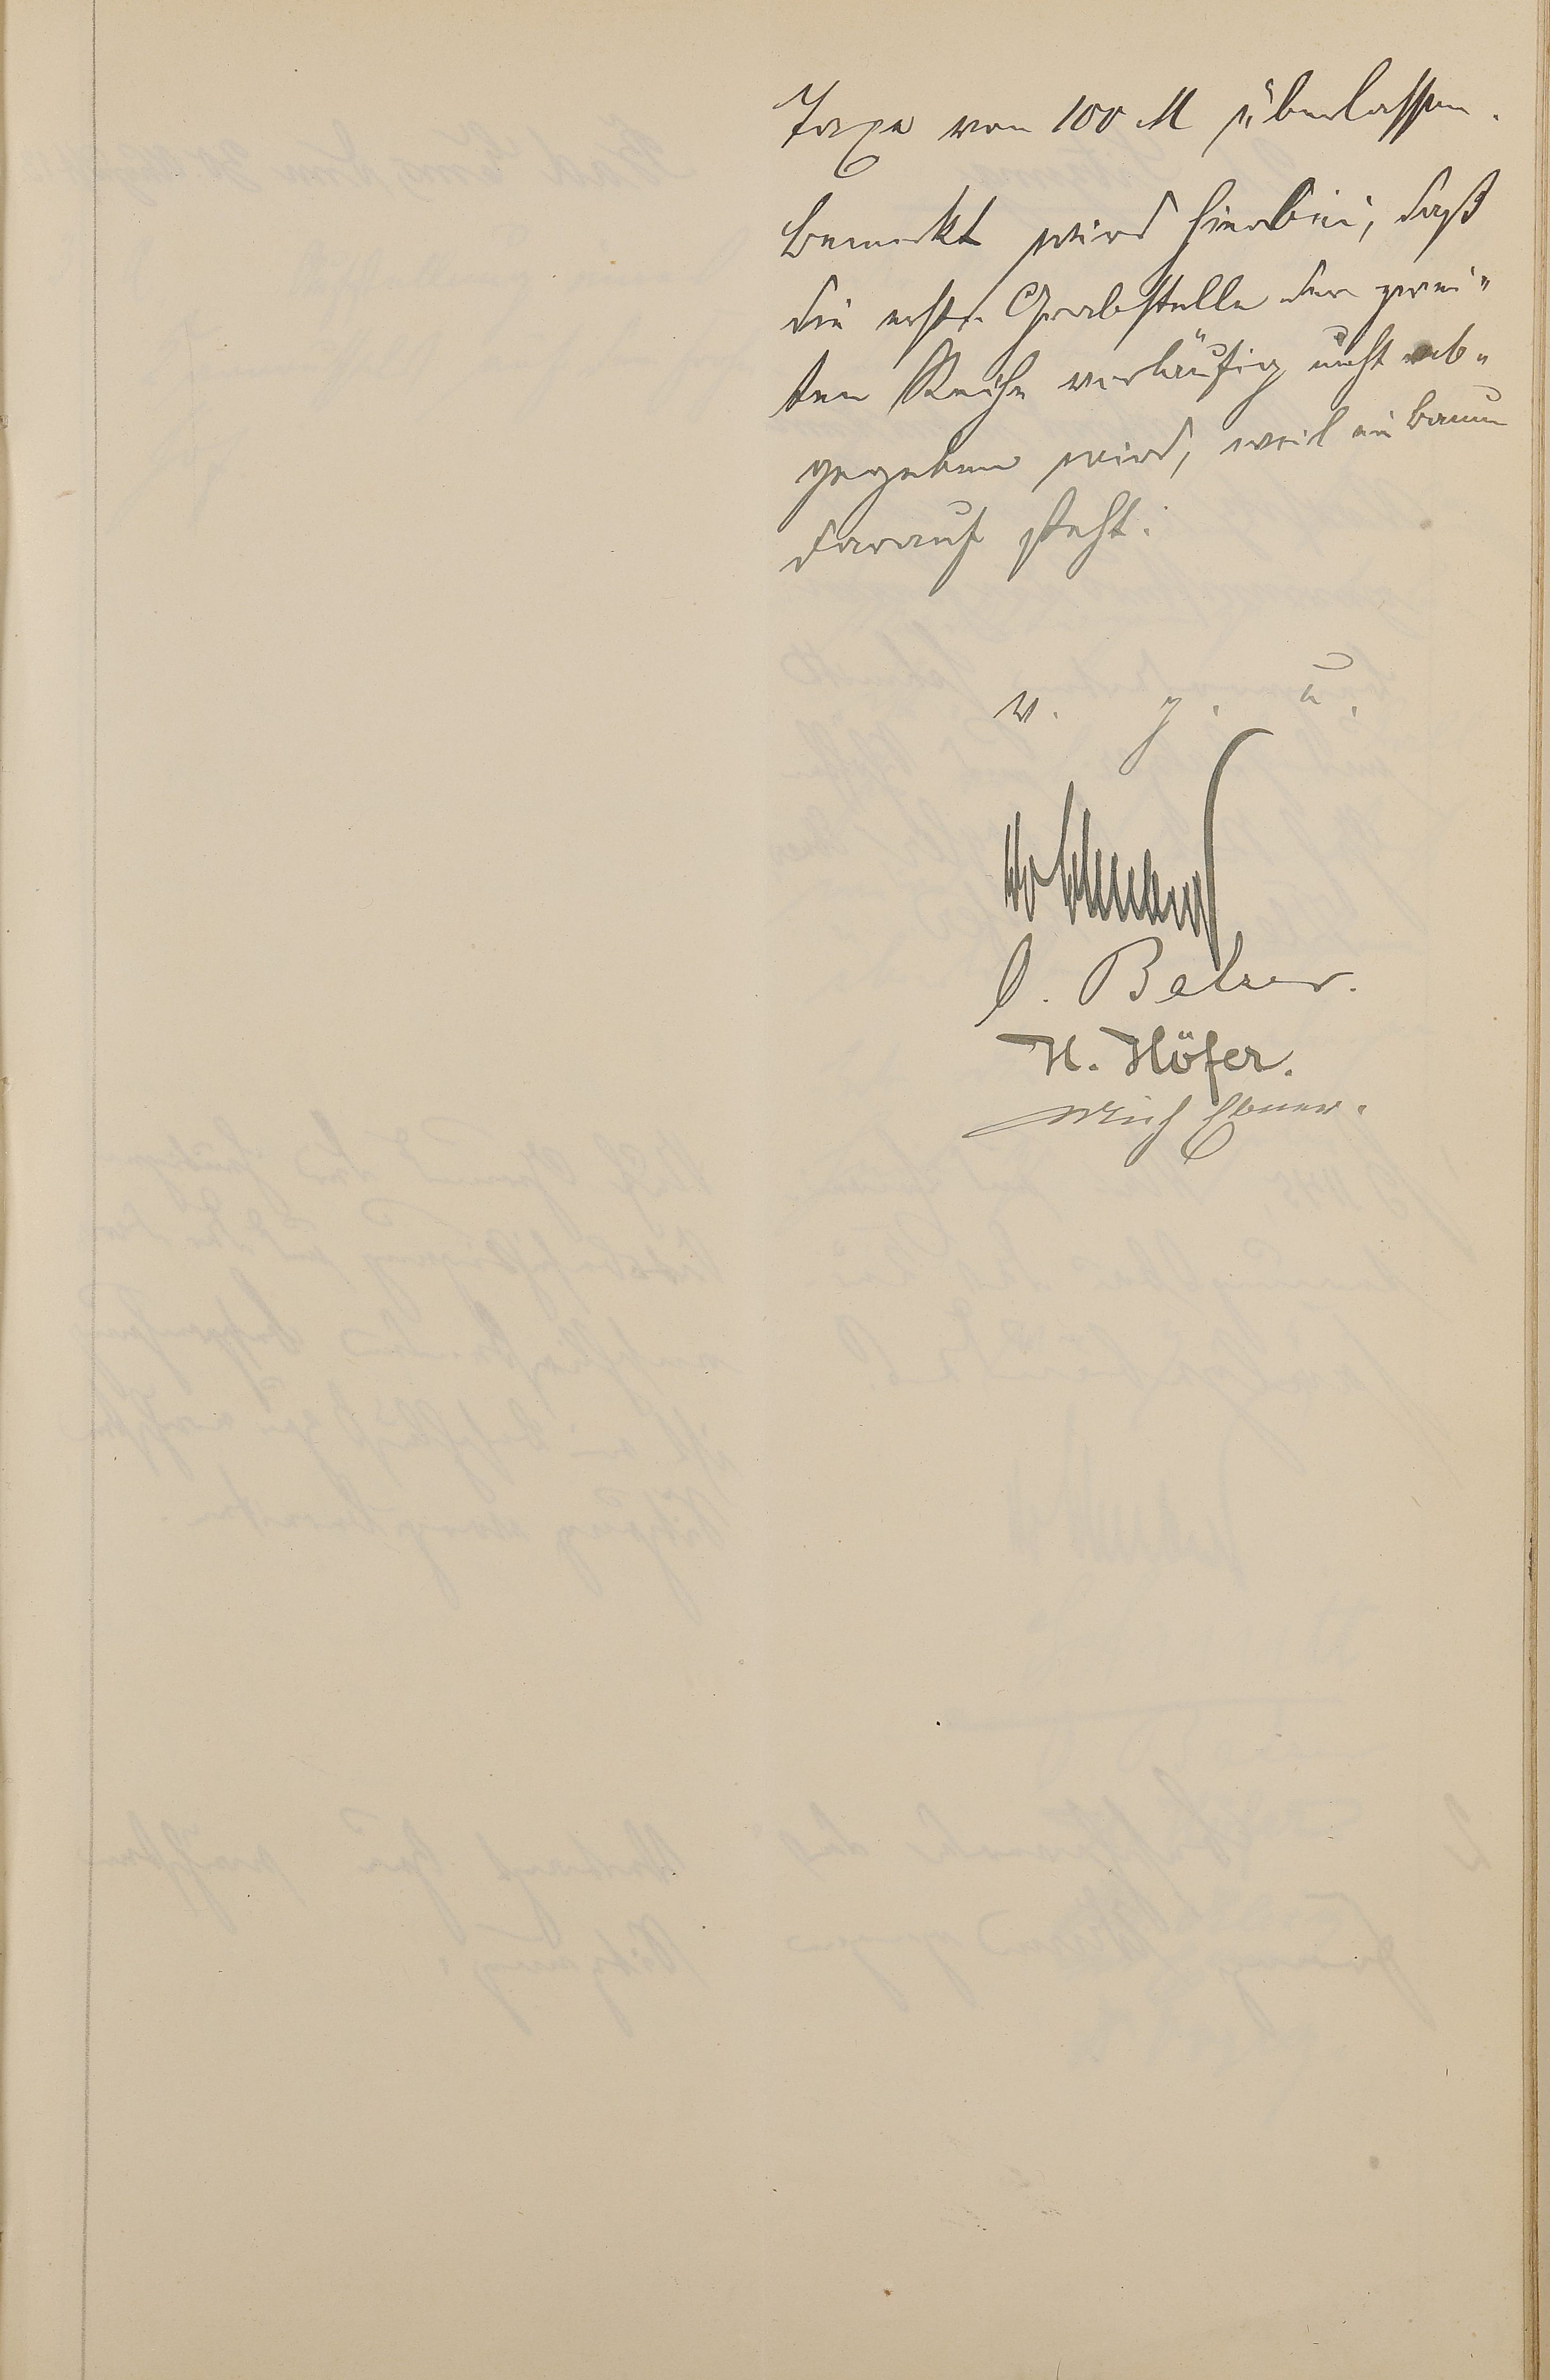 Taxe von 100 M überlassen.
Bemerkt wird hierbei, daß
die erste Grabstelle der zwei"
ten Reihe vorläufig nicht ab"
gegeben wird, weil ein Baum
darauf steht.
v. g. u.
C. Balzer.
H. Höfer.